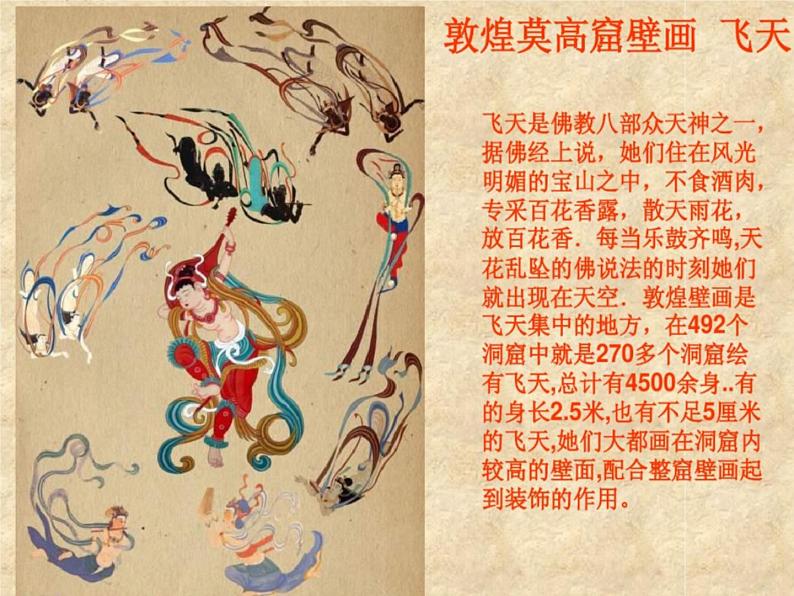 敦煌莫高窟壁画 飞天
飞天是佛教八部众天神之一，
据佛经上说，她们住在风光
明媚的宝山之中，不食酒肉，
专采百花香露，散天雨花，
放百花香．每当乐鼓齐鸣,天
花乱坠的佛说法的时刻她们
就出现在天空．敦煌壁画是
飞天集中的地方，在492个
洞窟中就是270多个洞窟绘
有飞天,总计有4500余身..有
的身长2.5米,也有不足5厘米
的飞天,她们大都画在洞窟内
较高的壁面,配合整窟壁画起
到装饰的作用。